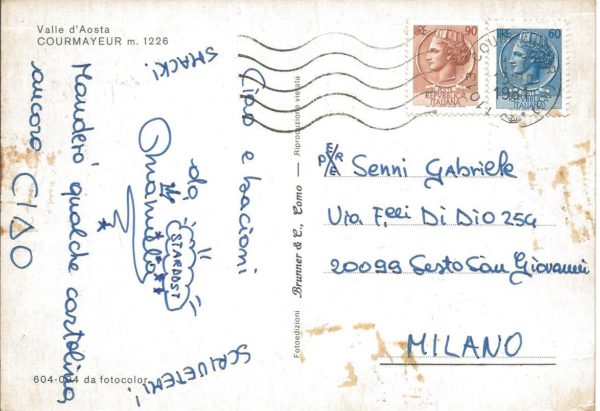 Valle d'Aosta
COURMAYEUR m. 1226
SMACK!
Ciao e bacioni
da
STARDOST
SCRIVETEMI!
Manderò qualche cartolina,
ancora CIAO
604-004 da fotocolor
Fotoedizioni Brunner & C., Como — Riproduzione vietata
LIRE 90
REPVBBLICA
ITALIANA
LIRE 60
REPVBBLICA
ITALIANA
PER
Senni Gabriele
Via F.lli Di Dio 254
20099 Sesto San Giovanni
MILANO